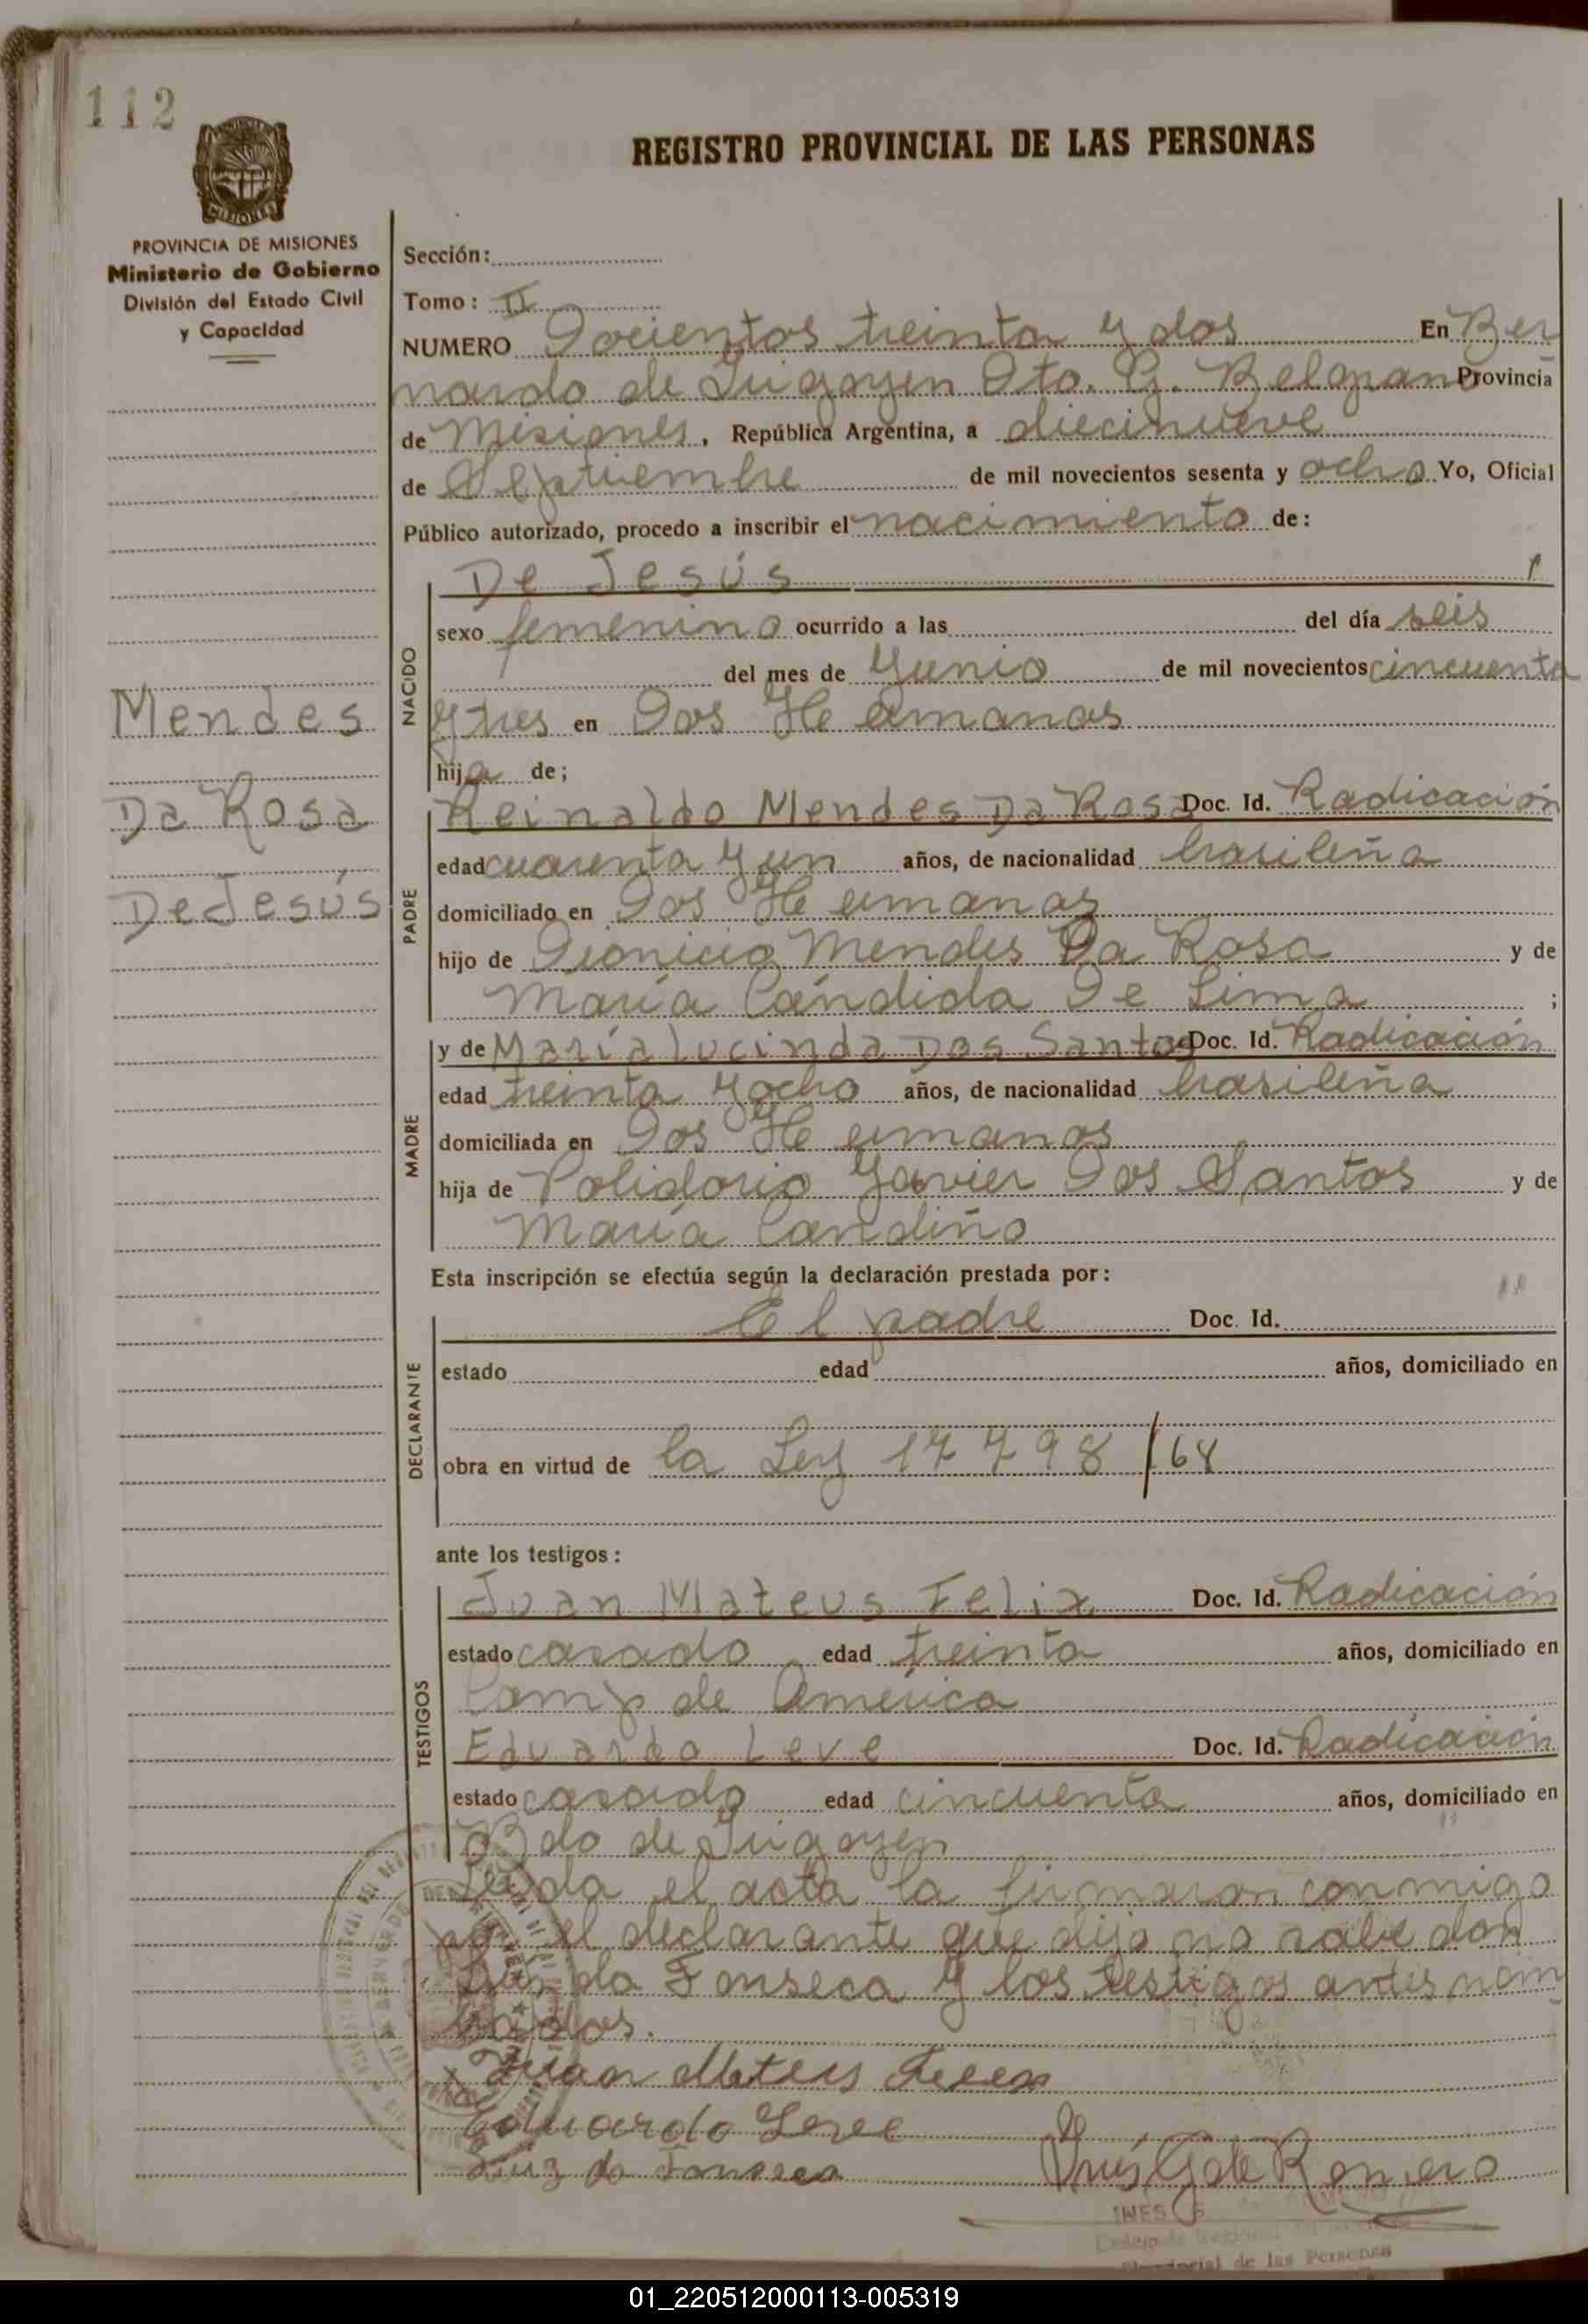 112
REGISTRO PROVINCIAL DE LAS PERSONAS
MISIONES
PROVINCIA DE MISIONES
Ministerio de Gobierno
División del Estado Civil
y Capacidad
Sección:
Tomo: II
NUMERO Docientos treinta y dos En Ber
nardo de Irigoyen Dto. G. Belgrano Provincia
de Misiones, República Argentina, a diecinueve
de Septiembre de mil novecientos sesenta y ocho Yo, Oficial
Público autorizado, procedo a inscribir el nacimiento de:
NACIDO
De Jesús
sexo femenino ocurrido a las del día seis
del mes de Yunio de mil novecientos cincuenta
y tres en Dos Hermanas
hija de;
Mendes
Da Rosa
De Jesús
PADRE
Reinaldo Mendes Da Rosa Doc. Id. Radicación
edad cuarenta y un años, de nacionalidad brasileña
domiciliado en Dos Hermanas
hijo de Dionicio Mendes Da Rosa y de
María Cándida De Lima ;
MADRE
y de María Lucinda Dos Santos Doc. Id. Radicación
edad treinta y ocho años, de nacionalidad brasileña
domiciliada en Dos Hermanas
hija de Polidorio Javier Dos Santos y de
María Candiño
Esta inscripción se efectúa según la declaración prestada por:
DECLARANTE
El padre Doc. Id.
estado edad años, domiciliado en
obra en virtud de la Ley 17798/68
ante los testigos:
TESTIGOS
Juan Mateus Felix Doc. Id. Radicación
estado casado edad treinta años, domiciliado en
Comp de América
Eduardo Leve Doc. Id. Radicación
estado casado edad cincuenta años, domiciliado en
Bdo de Irigoyen
Leída el acta la firmaron conmigo
por el declarante que dijo no sabe don
Luiz da Fonseca y los testigos antes nom
brados.
Juan Mateus Felix
Eduardo Leve
Luiz da Fonseca
Inés G de Romero
INES G
de las Personas
01_220512000113-005319